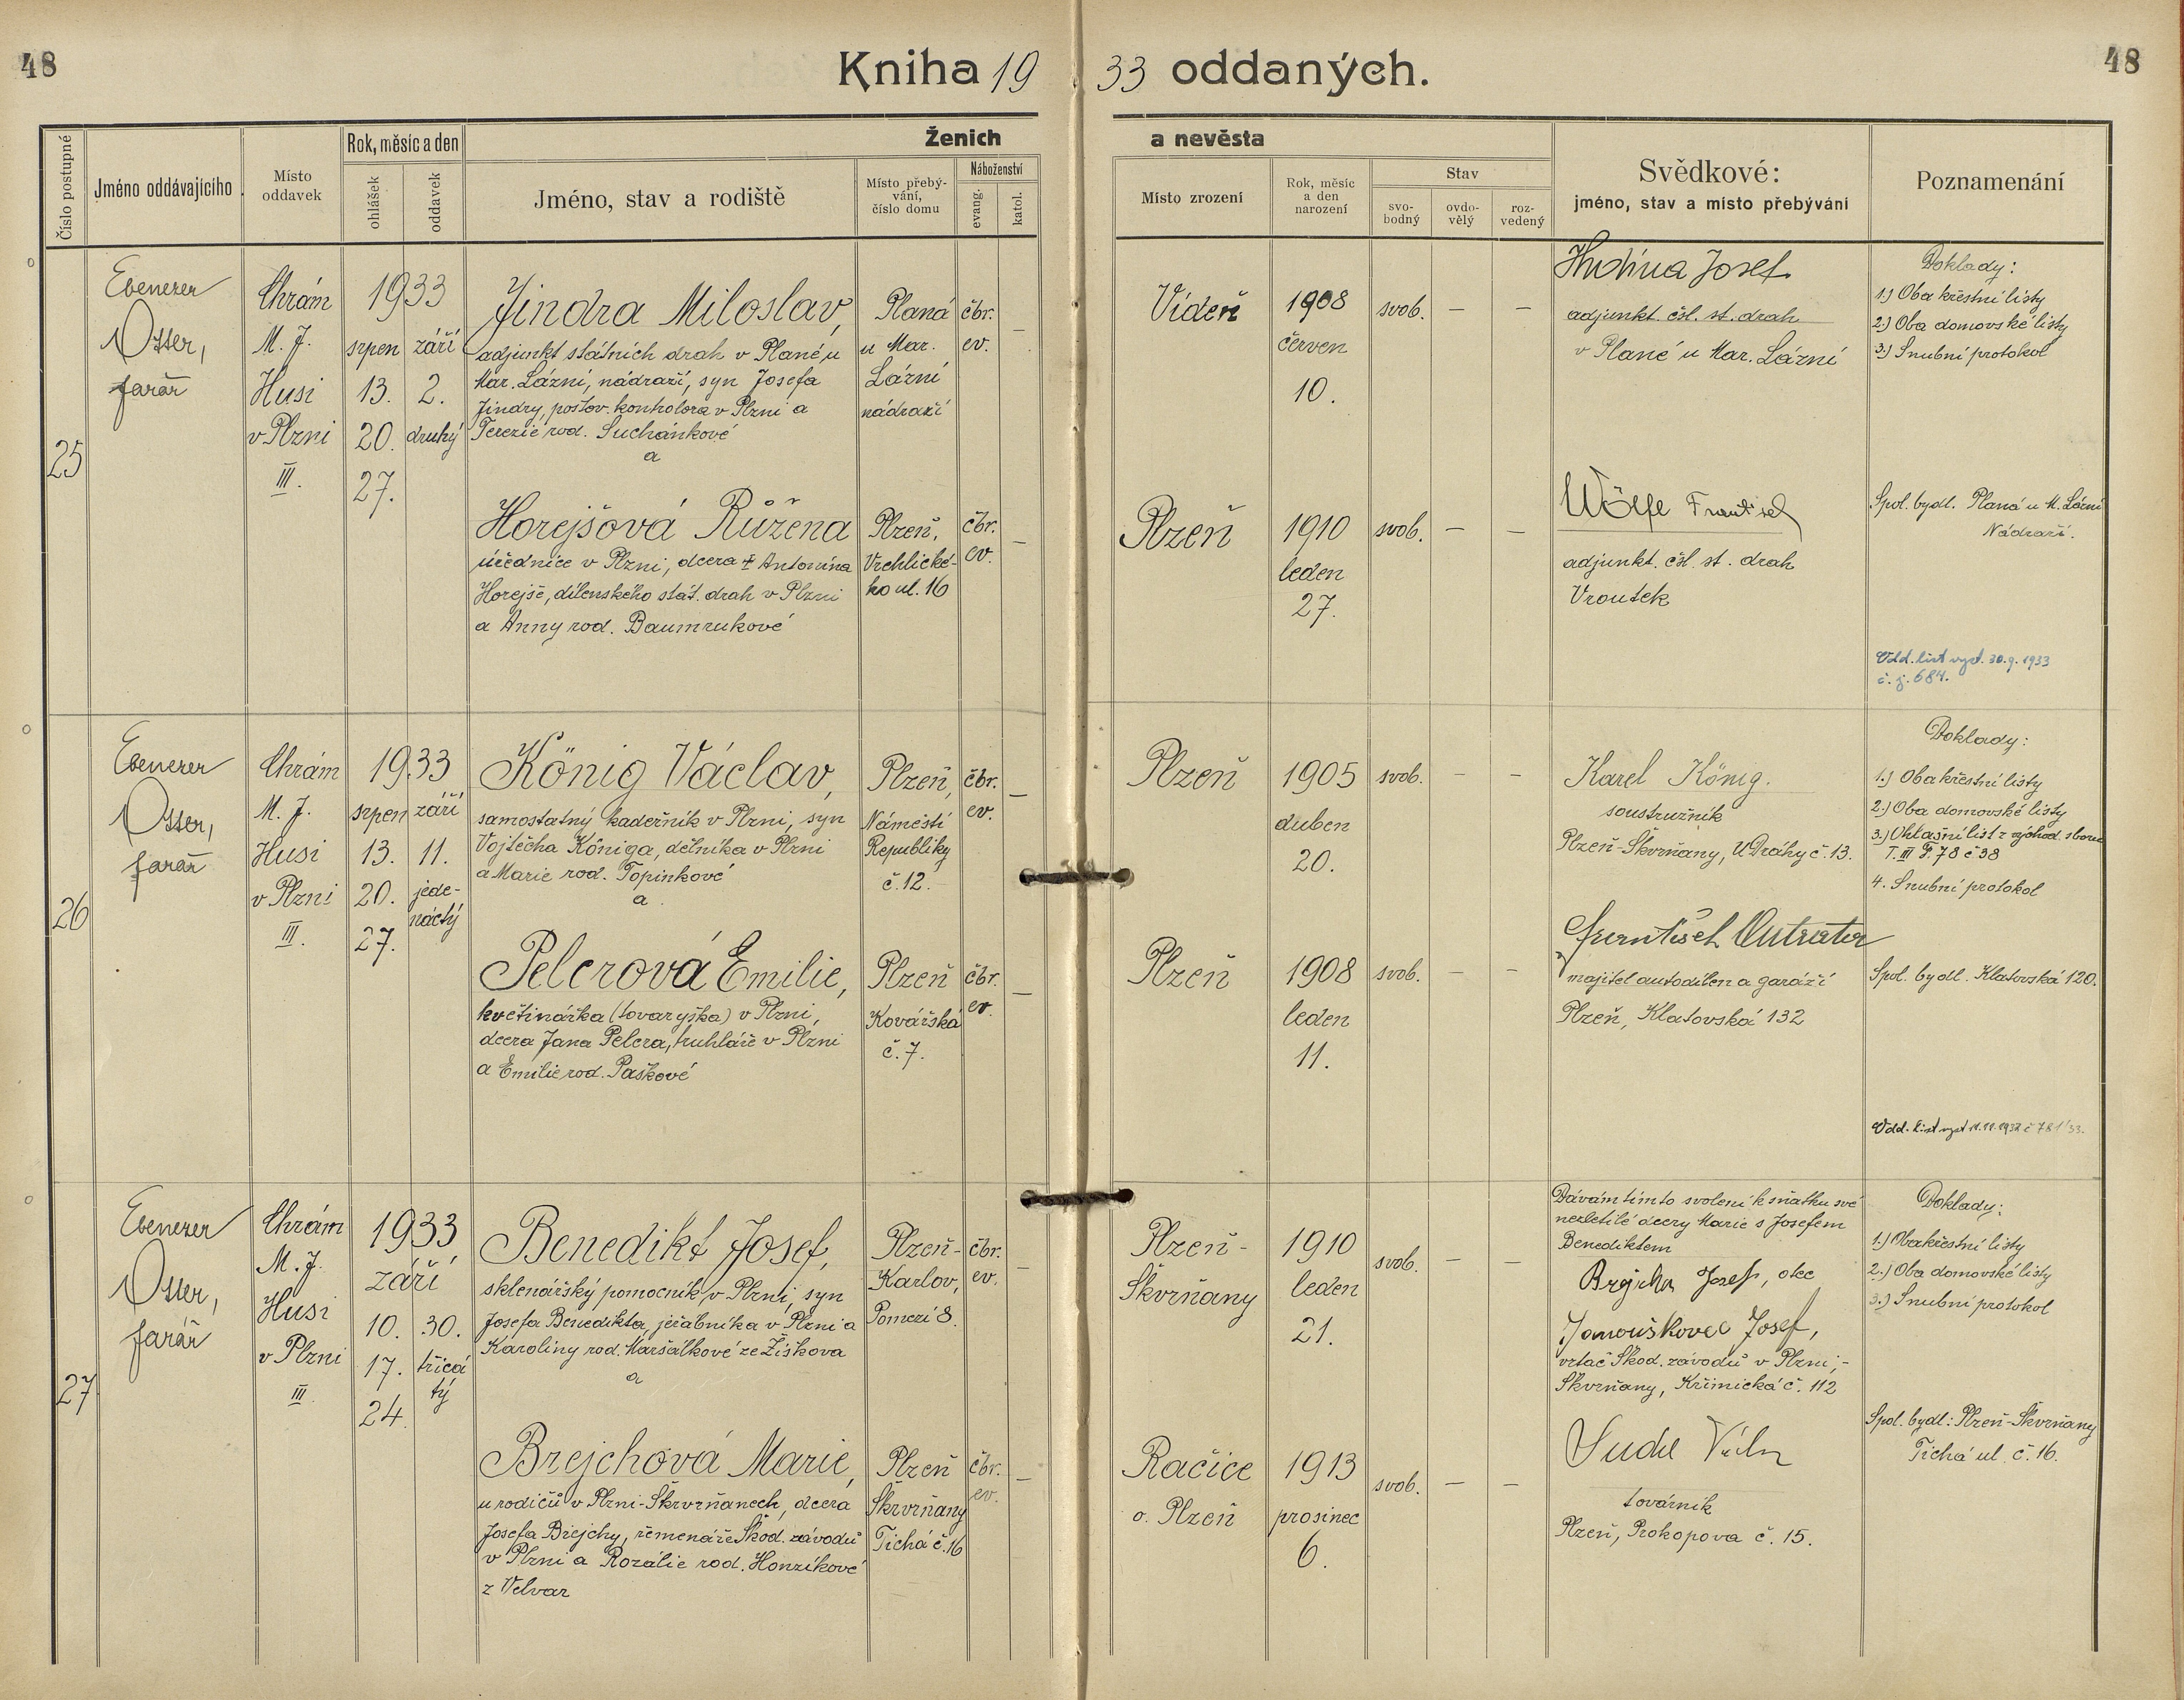 48
Kniha 19 33 oddaných.
48
Číslo postupné
Jméno oddávajícího
Místo oddavek
Rok, měsíc a den
ohlášek
oddavek
Ženich
Jméno, stav a rodiště
Místo přebývání, číslo domu
Náboženství
evang.
katol.
a nevěsta
Místo zrození
Rok, měsíc a den narození
Stav
svobodný
ovdovělý
rozvedený
Svědkové:
jméno, stav a místo přebývání
Poznamenání
25
Ebenezer
Otter,
farář
Chrám
M. J.
Husi
v Plzni
III.
1933
srpen
13.
20.
27.
září
2.
druhý
Jindra Miloslav,
adjunkt státních drah v Plané u
Mar. Lázní, nádraží, syn Josefa
Jindry, poštov. kontrolora v Plzni a
Terezie rod. Suchánkové
a
Planá
u Mar.
Lázní
nádraží
čbr.
ev.
–
Vídeň
1908
červen
10.
svob.
–
–
Hudina Josef
adjunkt. čsl. st. drah
v Plané u Mar. Lázní
Doklady:
1.) Oba křestní listy
2.) Oba domovské listy
3.) Snubní protokol
Horejšová Růžena
úřednice v Plzni, dcera † Antonína
Horejše, dílenského stát. drah v Plzni
a Anny rod. Baumrukové
Plzeň,
Vrchlické-
ho ul. 16
čbr.
ev.
–
Plzeň
1910
leden
27.
svob.
–
–
Wölfe František
adjunkt. čsl. st. drah
Vroutek
Spol. bydl. Planá u M. Lázní
Nádraží.
Odd. list vyd. 30.9.1933
č. j. 684.
26
Ebenezer
Otter,
farář
Chrám
M. J.
Husi
v Plzni
III.
1933
srpen
13.
20.
27.
září
11.
jede-
náctý
König Václav,
samostatný kadeřník v Plzni, syn
Vojtěcha Königa, dělníka v Plzni
a Marie rod. Topinkové
a
Plzeň,
Náměstí
Republiky
č. 12.
čbr.
ev.
–
Plzeň
1905
duben
20.
svob.
–
–
Karel König.
soustružník
Plzeň-Škvrňany, U Dráhy č. 13.
Doklady:
1.) Oba křestní listy
2.) Oba domovské listy
3.) Ohlašní list z východ. sboru
T. III F. 78 č 38
4. Snubní protokol
Pelcrová Emilie,
květinářka (tovaryška) v Plzni,
dcera Jana Pelcra, truhláře v Plzni
a Emilie rod. Paškové
Plzeň
Kovářská
č. 7.
čbr.
ev.
–
Plzeň
1908
leden
11.
svob.
–
–
František Outrata
majitel autodílen a garáží
Plzeň, Klatovská 132
Spol. bydl. Klatovská 120.
Odd. list vyd
27
Ebenezer
Otter,
farář
Chrám
M. J.
Husi
v Plzni
III.
1933
září
10.
17.
24.
30.
třicá
tý
Benedikt Josef,
sklenářský pomocník v Plzni, syn
Josefa Benedikta, jeřábníka v Plzni a
Karoliny rod. Maršálkové ze Žižkova
a
Plzeň-
Karlov,
Pomezí 8.
čbr.
ev.
–
Plzeň-
Škvrňany
1910
leden
21.
svob.
–
–
Dávám tímto svolení k sňatku své
nezletilé dcery Marie s Josefem
Benediktem
Brejcha Josef, otec
Janouškovec Josef,
vrtač Škod. závodů v Plzni,-
Škvrňany, Křimická č. 112
Doklady:
1.) Oba křestní listy
2.) Oba domovské listy
3.) Snubní protokol
Brejchová Marie,
u rodičů v Plzni-Škvrňanech, dcera
Josefa Brejchy, řemenáře Škod. závodů
v Plzni a Rozálie rod. Honzíkové
z Velvar
Plzeň
Škvrňany
Tichá č. 16
čbr.
ev.
–
Račice
o. Plzeň
1913
prosinec
6.
svob.
–
–
továrník
Plzeň, Prokopova č. 15.
Spol. bydl: Plzeň-Škvrňany
Tichá ul. č. 16.